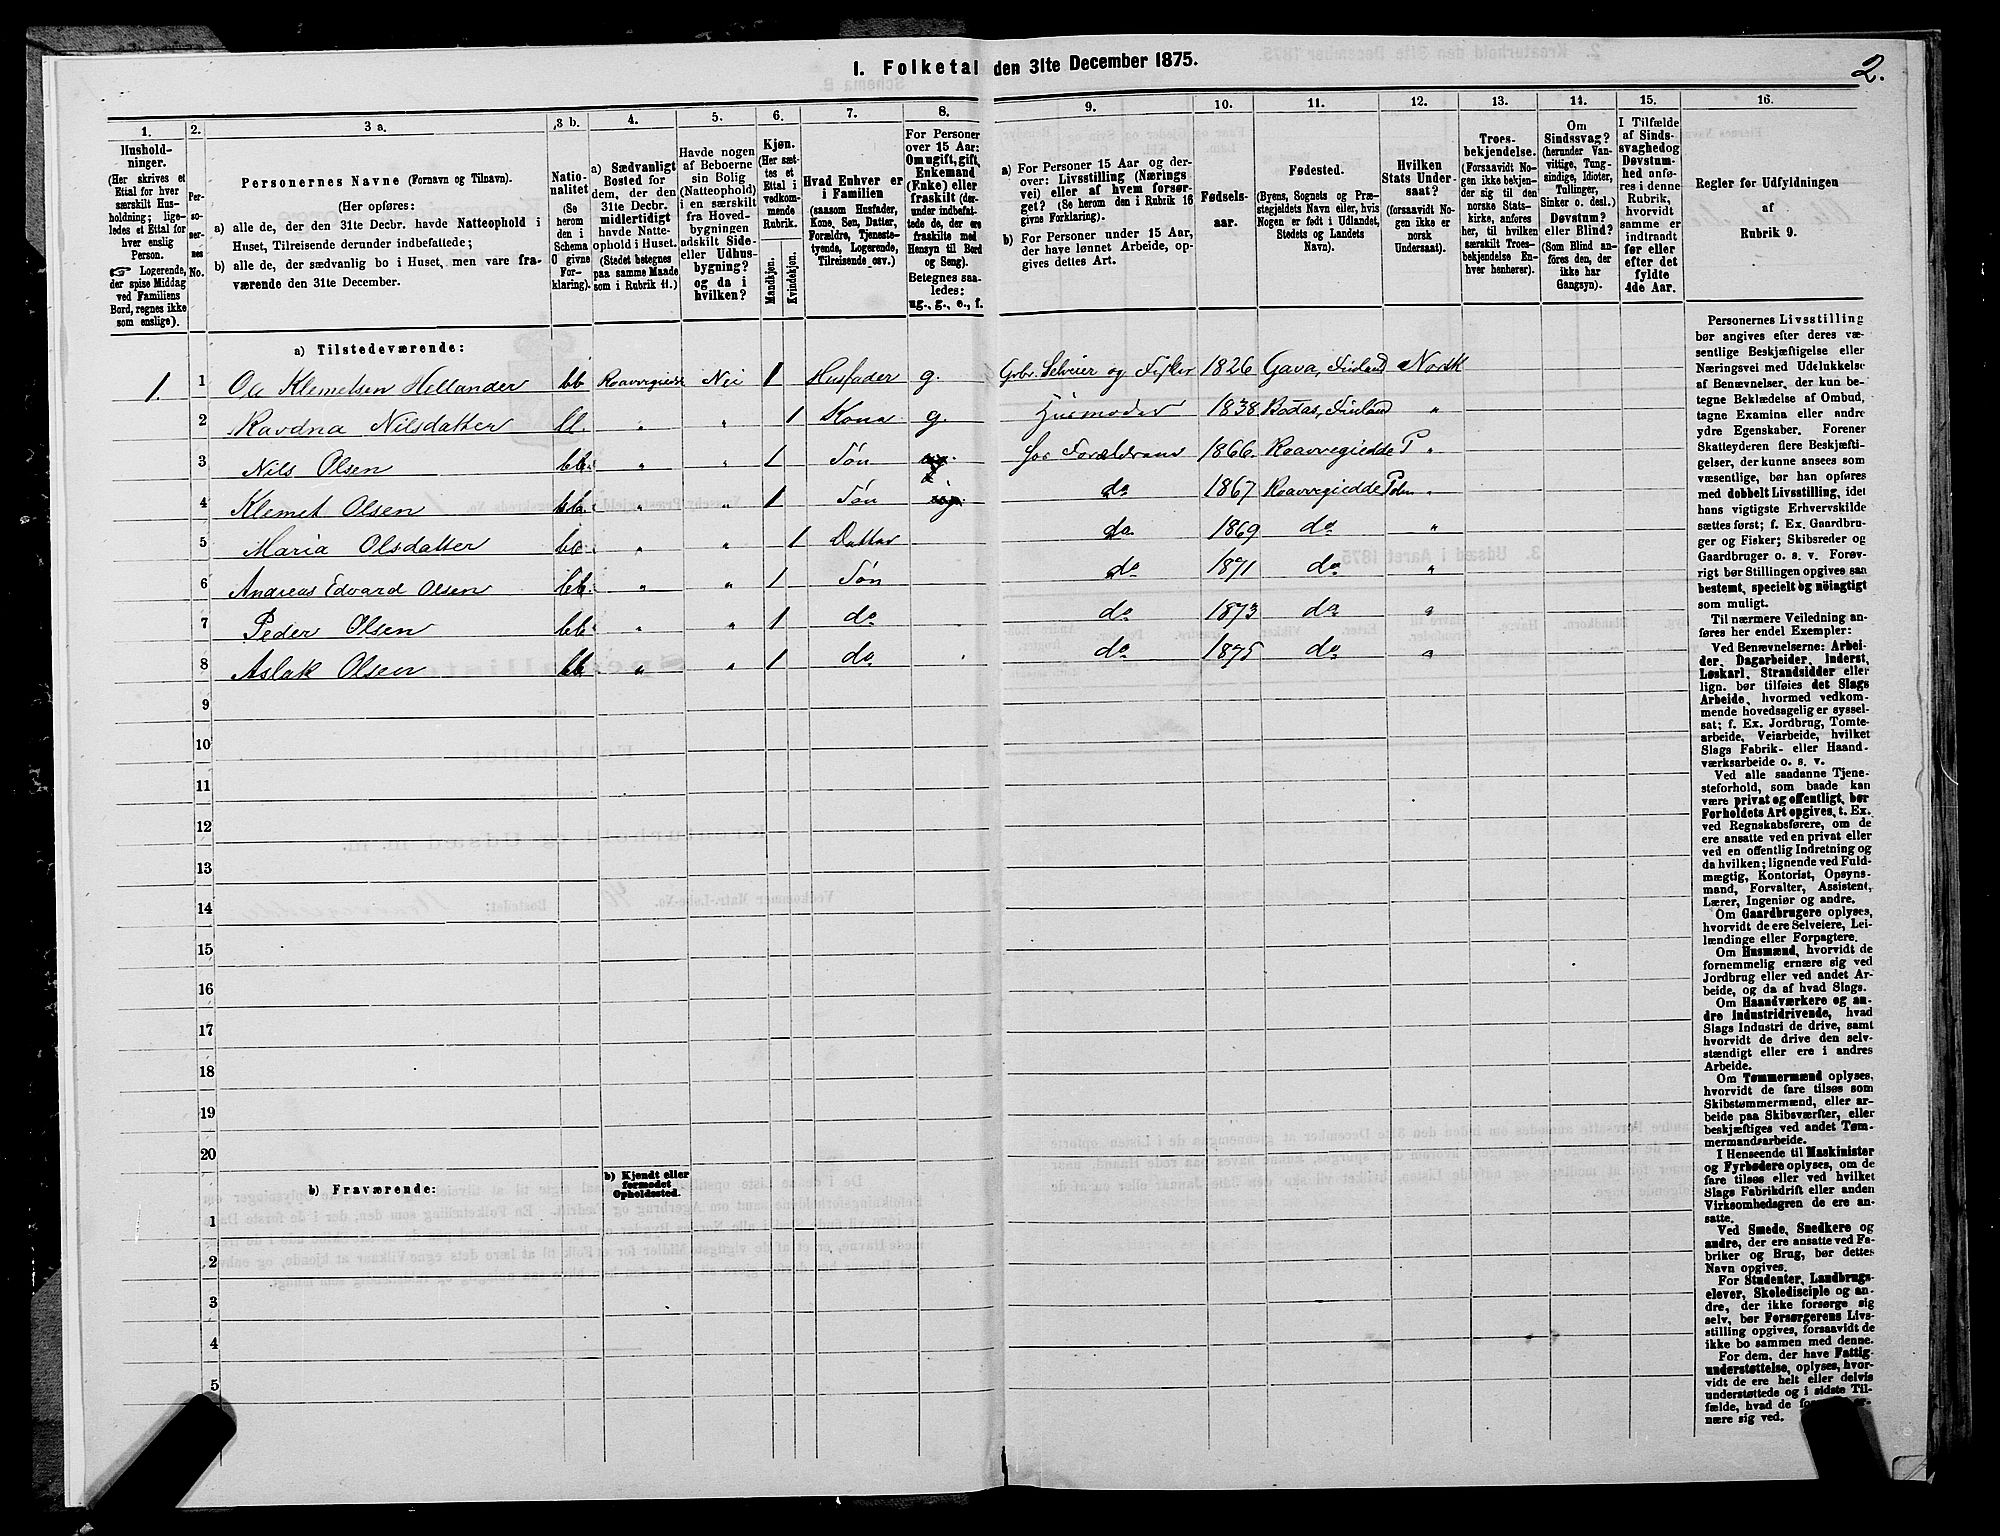 I. Folketal den 31te December 1875.
2.
1.
Hushold-
ninger.
(Her skrives et
Ettal for hver
særskilt Hus-
holdning; lige-
ledes et Ettal for
hver enslig
Person.
☞ Logerende,
der spise Middag
ved Familiens
Bord, regnes ikke
som enslige).
2.
Per-
so-
ner-
nes
No.
3 a.
Personernes Navne (Fornavn og Tilnavn).
(Her opføres:
a) alle de, der den 31te Decbr. havde Natteophold i
Huset, Tilreisende derunder indbefattede;
b) alle de, der sædvanlig bo i Huset, men vare fra-
værende den 31te December.
3 b.
Natio-
nalitet
(Se
herom
den i
Schema
O givne
For-
klaring).
4.
a) Sædvanligt
Bosted for
dem, der den
31te Decbr.
midlertidigt
havde Natte-
ophold i Huset.
(Stedet betegnes
paa samme Maade
som i Rubrik 11.)
5.
Havde nogen
af Beboerne
sin Bolig
(Natteophold)
i en særskilt
fra Hoved-
bygningen
adskilt Side-
eller Udhus-
bygning?
og da i
hvilken?
6.
Kjøn.
(Her sæt-
tes et
Ettal i
vedkom-
mende
Rubrik.
Mandkjøn.
Kvindekjøn.
7.
Hvad Enhver er
i Familien
(saasom Husfader,
Kone, Søn, Datter,
Forældre, Tjeneste-
tyende, Logerende,
Tilreisende osv.)
8.
For Personer
over 15 Aar:
Om ugift, gift,
Enkemand
(Enke) eller
fraskilt (der-
under indbefat-
tede de, der ere
fraskilte med
Hensyn til Bord
og Seng).
Betegnes saa-
ledes:
ug., g., e., f.
9.
a) For Personer 15 Aar og der-
over: Livsstilling (Nærings
vei) eller af hvem forsør-
get? (Se herom den i Rubrik 16
givne Forklaring).
b) For Personer under 15 Aar,
der have lønnet Arbeide, op-
gives dettes Art.
10.
Fødsels-
aar.
11.
Fødested.
(Byens, Sognets og Præ-
stegjeldets Navn eller, hvis
Nogen er født i Udlandet,
Stedets og Landets
Navn).
12.
Hvilken
Stats Under-
saat?
(forsaavidt No-
gen ikke er
norsk
Undersaat).
13.
Troes-
bekjendelse.
(Forsaavidt No-
gen ikke bekjen-
der sig til den
norske Stats-
kirke, anføres
her, til hvilken
særskilt Troes-
bekjendelse En-
hver henhører).
14.
Om
Sindssvag?
(herunder Van-
vittige, Tung-
sindige, Idioter,
Tullinger,
Sinker o. desl.)
Døvstum?
eller Blind?
(Som Blind an-
føres den, der
ikke har
Gangsyn).
15.
I Tilfælde
af Sinds-
svaghed og
Døvstum-
hed anfø-
res i denne
Rubrik,
hvorvidt
samme er
indtraadt
før eller
efter det
fyldte
4de Aar.
16.
Regler før Udfyldningen
af
Rubrik 9.
a) Tilstedeværende:
1. 1 Ole Klemetsen Hellander bb Raavvegiedde Nei 1 Husfader g. Grbr. Selveier og Fisker 1826 Gava, Finland Norsk
2 Ravdna Nilsdatter bb. " " 1 Kona g. Husmoder 1838 Bodas, Finland "
3 Nils Olsen bb. " " 1 Søn Forældrene 1866 Raavvegiedde P "
4 Klemet Olsen bb. " " 1 Søn do 1867 Raavvegiedde "
5 Maria Olsdatter bb. " " 1 Datter do 1869 do "
6 Andreas Edvard Olsen bb. " " 1 Søn do 1871 do "
7 Peder Olsen bb. " " 1 do do 1873 do "
8 Aslak Olsen bb. " " 1 do do 1875 do "
9
10
11
12
13
14
15
16
17
18
19
20
b) Fraværende:
b) Kjendt eller
formodet
Opholdssted.
1
2
3
4
5
Personernes Livsstilling
bør angives efter deres væ-
sentlige Beskjæftigelse eller
Næringsvei med Udelukkelse
af Benævnelser, der kun be-
tegne Beklædelse af Ombud,
tagne Examina eller andre
ydre Egenskaber. Forener
Skatteyderen flere Beskjæfti-
gelser, der kunne ansees som
væsentlige, bør han opføres
med dobbelt Livsstilling, idet
hans vigtigste Erhvervskilde
sættes først; f. Ex. Gaardbru-
ger og Fisker; Skibsreder og
Gaardbruger o. s. v. Forøv-
rigt bør Stillingen opgives saa
bestemt, specielt og nöiagtigt
som muligt.
Til nærmere Veiledning an-
føres her endel Exempler:
Ved Benævnelserne: Arbei-
der, Dagarbeider, Inderst,
Løskarl, Strandsidder eller
lign. bør tilføies det Slags
Arbeide, hvormed vedkom-
mende hovedsagelig er syssel-
sat; f. Ex. Jordbrug, Tomte-
arbeide, Veiarbeide, hvilket
Slags Fabrik- eller Haand-
værksarbeide o. s. v.
Ved alle saadanne Tjene-
steforhold, som baade kan
være privat og offentligt, bør
Forholdets Art opgives, t. Ex.
ved Regnskabsførere, om de
ere ansatte ved en privat eller
ved en offentlig Indretning og
da hvilken; lignende ved Fuld-
mægtig, Kontorist, Opsyns-
mand, Forvalter, Assistent,
Lærer, Ingeniør og andre.
Om Gaardbrugere oplyses,
hvorvidt de ere Selveiere, Lei-
lændinge eller Forpagtere.
Om Husmænd, hvorvidt de
fornemmelig ernære sig ved
Jordbrug eller ved andet Ar-
beide, og da af hvad Slags.
Om Haandværkere og an-
dre industridrivende, hvad
Slags Industri de drive, samt
hvorvidt de drive den selv-
stændigt eller ere i andres
Arbeide.
Om Tømmermænd oplyses,
hvorvidt de fare tilsøs som
Skibstømmermænd, eller ar-
beide paa Skibsværfter, eller
beskjæftiges ved andet Tøm-
mermandsarbeide.
I Henseende til Maskinister
og Fyrbødere oplyses, om de
fare tilsøs eller ved hvilket
Slags Fabrikdrift eller anden
Virksomhedsgren de ere an-
satte.
Ved Smede, Snedkere og
andre, der ere ansatte ved Fa-
briker og Brug, bør dettes
Navn opgives.
For Studenter, Landbrugs-
elever, Skoledisciple og an-
dre, der ikke forsørge sig
selv, bør Forsørgerens Livs-
stilling opgives, forsaavidt de
ikke bo sammen med denne.
For dem, der have Fattig-
understøttelse, oplyses, hvor-
vidt de ere helt eller delvis
understøttede og i sidste Til-
fælde, hvad de
nære sig ved.